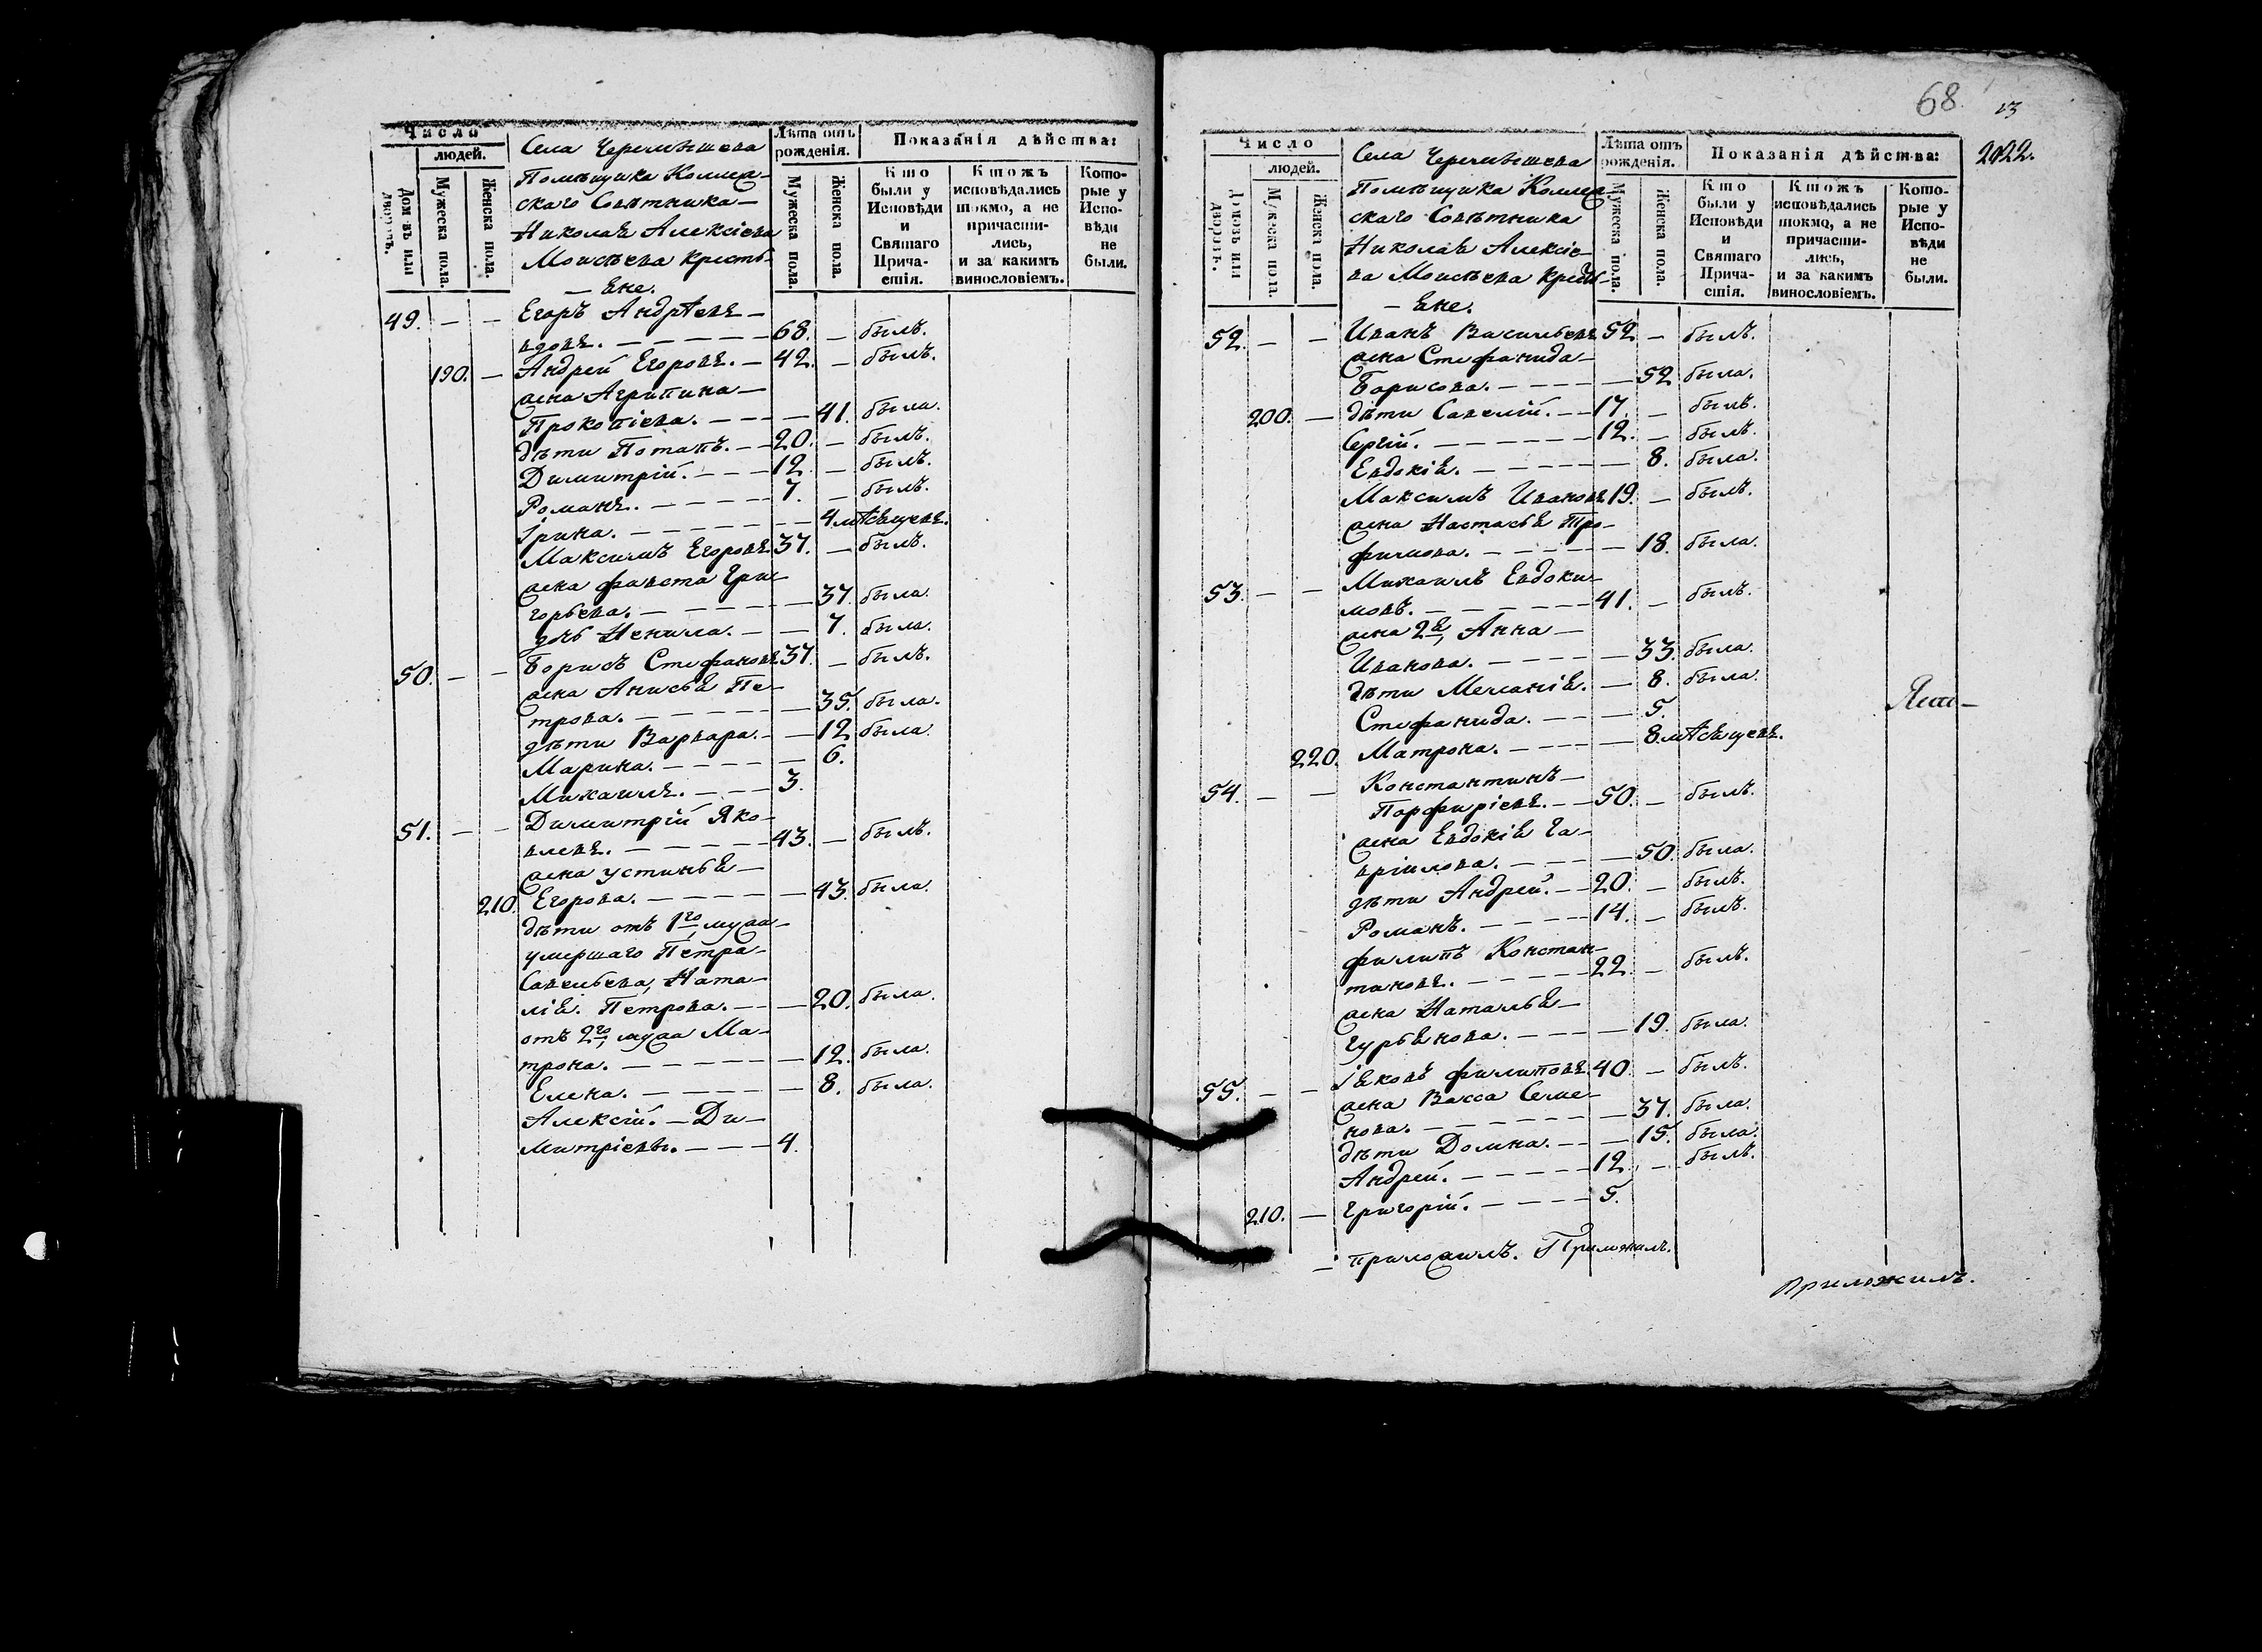 Число
людей.
Домовъ или дворовъ.
Мужеска пола.
Женска пола.
Села Черемѣшева
Помѣщика Коллеж-
скаго Совѣтника
Николая Алексіева
Моисѣева кресть-
яне.
Лѣта отъ
рожденія.
Мужеска пола.
Женска пола.
Показанія дѣйства:
Кто
были у
Исповѣди
и
Святаго
Прича-
стія.
Ктожъ
исповѣдались
токмо, а не
причасти-
лись,
и за какимъ
винословіемъ.
Кото-
рые у
Испо-
вѣди
не
были.
49. — — Егоръ Андрѣевъ —
вдовъ. — 68. — былъ.
190. — Андрей Егоровъ. — 42. — былъ.
жена Агрипина —
Прокопіева. — 41. была.
дѣти Потапъ. — 20. — былъ.
Димитрій. — 12. — былъ.
Романъ. — 7. — былъ.
Ірина. — 4 мѣсяцевъ.
Максимъ Егоровъ 37. — былъ.
жена Фавста Гри-
горьева. — 37. была.
дочь Ненила. — 7. была.
50. — — Борисъ Стефановъ 37. — былъ.
жена Анисья Пе-
трова. — 35. была.
дѣти Варвара. — 12 была
Марина. — 6.
Михаилъ. — 3.
51. — — Димитрій Яко-
влевъ. — 43. — былъ.
жена Устинья —
210. Егорова. — 43. была.
дѣти отъ 1го мужа
умершаго Петра
Савельева, Ната-
лія Петрова. — 20. была.
отъ 2го, мужа Ма-
трона. — 12. была.
Елена. — 8. была.
Алексій. — Ди-
митріевы. — 4.
68. 13
2022.
Число
людей.
Домовъ или дворовъ.
Мужеска пола.
Женска пола.
Села Черемѣшева
Помѣщика Коллеж-
скаго Совѣтника
Николая Алексіе-
ва Моисѣева кресть-
яне.
Лѣта отъ
рожденія.
Мужеска пола.
Женска пола.
Показанія дѣйства:
Кто
были у
Исповѣди
и
Святаго
Прича-
стія.
Ктожъ
исповѣдались
токмо, а не
причасти-
лись,
и за какимъ
винословіемъ.
Кото-
рые у
Испо-
вѣди
не
были.
52. — — Иванъ Васильевъ 52 — былъ.
жена Стефанида —
Борисова. — 52 была.
200. — дѣти Савелій. — 17. — былъ.
Сергій. — 12. — былъ.
Евдокія. — 8. была.
Максимъ Ивановъ 19. — былъ.
жена Настасья Тро-
фимова. — 18. была.
53. — — Михаилъ Евдоки-
мовъ. — 41. — былъ.
жена 2я, Анна —
Иванова. — 33. была.
дѣти Меланія. — 8. была.
Стефанида. — 5.
220. Матрона. — 8. мѣсяцевъ.
54. — — Константинъ —
Порфиріевъ. — 50. — былъ.
жена Евдокія Га-
вріилова. — 50. была.
дѣти Андрей. — 20. — былъ.
Романъ. — 14. — былъ.
Филипъ Констан-
тиновъ. — 22. — былъ.
жена Наталья —
Гурьянова. — 19. была.
55. — — Іаковъ Филиповъ 40. — былъ.
жена Васса Семе-
нова. — 37. была.
дѣти Домна. — 15. была.
Андрей. — 12. — былъ.
210. — Григорій. — 5.
приложилъ. Приложилъ.
приложилъ.